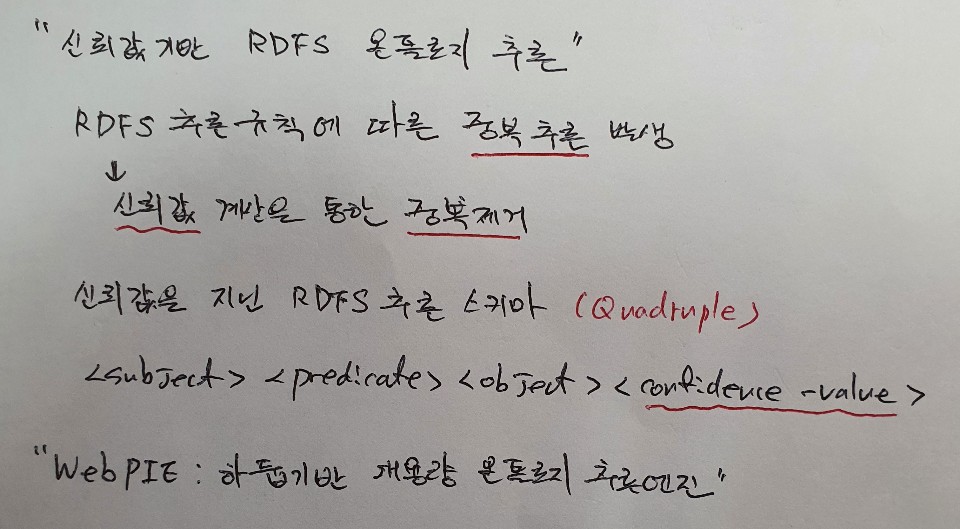 "신뢰값기반 RDFS 온톨로지 추론"
RDFS 추론규칙에 따른 중복 추론 발생
↓
신뢰값 계산을 통한 중복제거
신뢰값을 지닌 RDFS 추론 스키마 (Quadruple)
<subject> <predicate> <object> <confidence-value>
"WebPIE : 하둡기반 대용량 온톨로지 추론엔진"